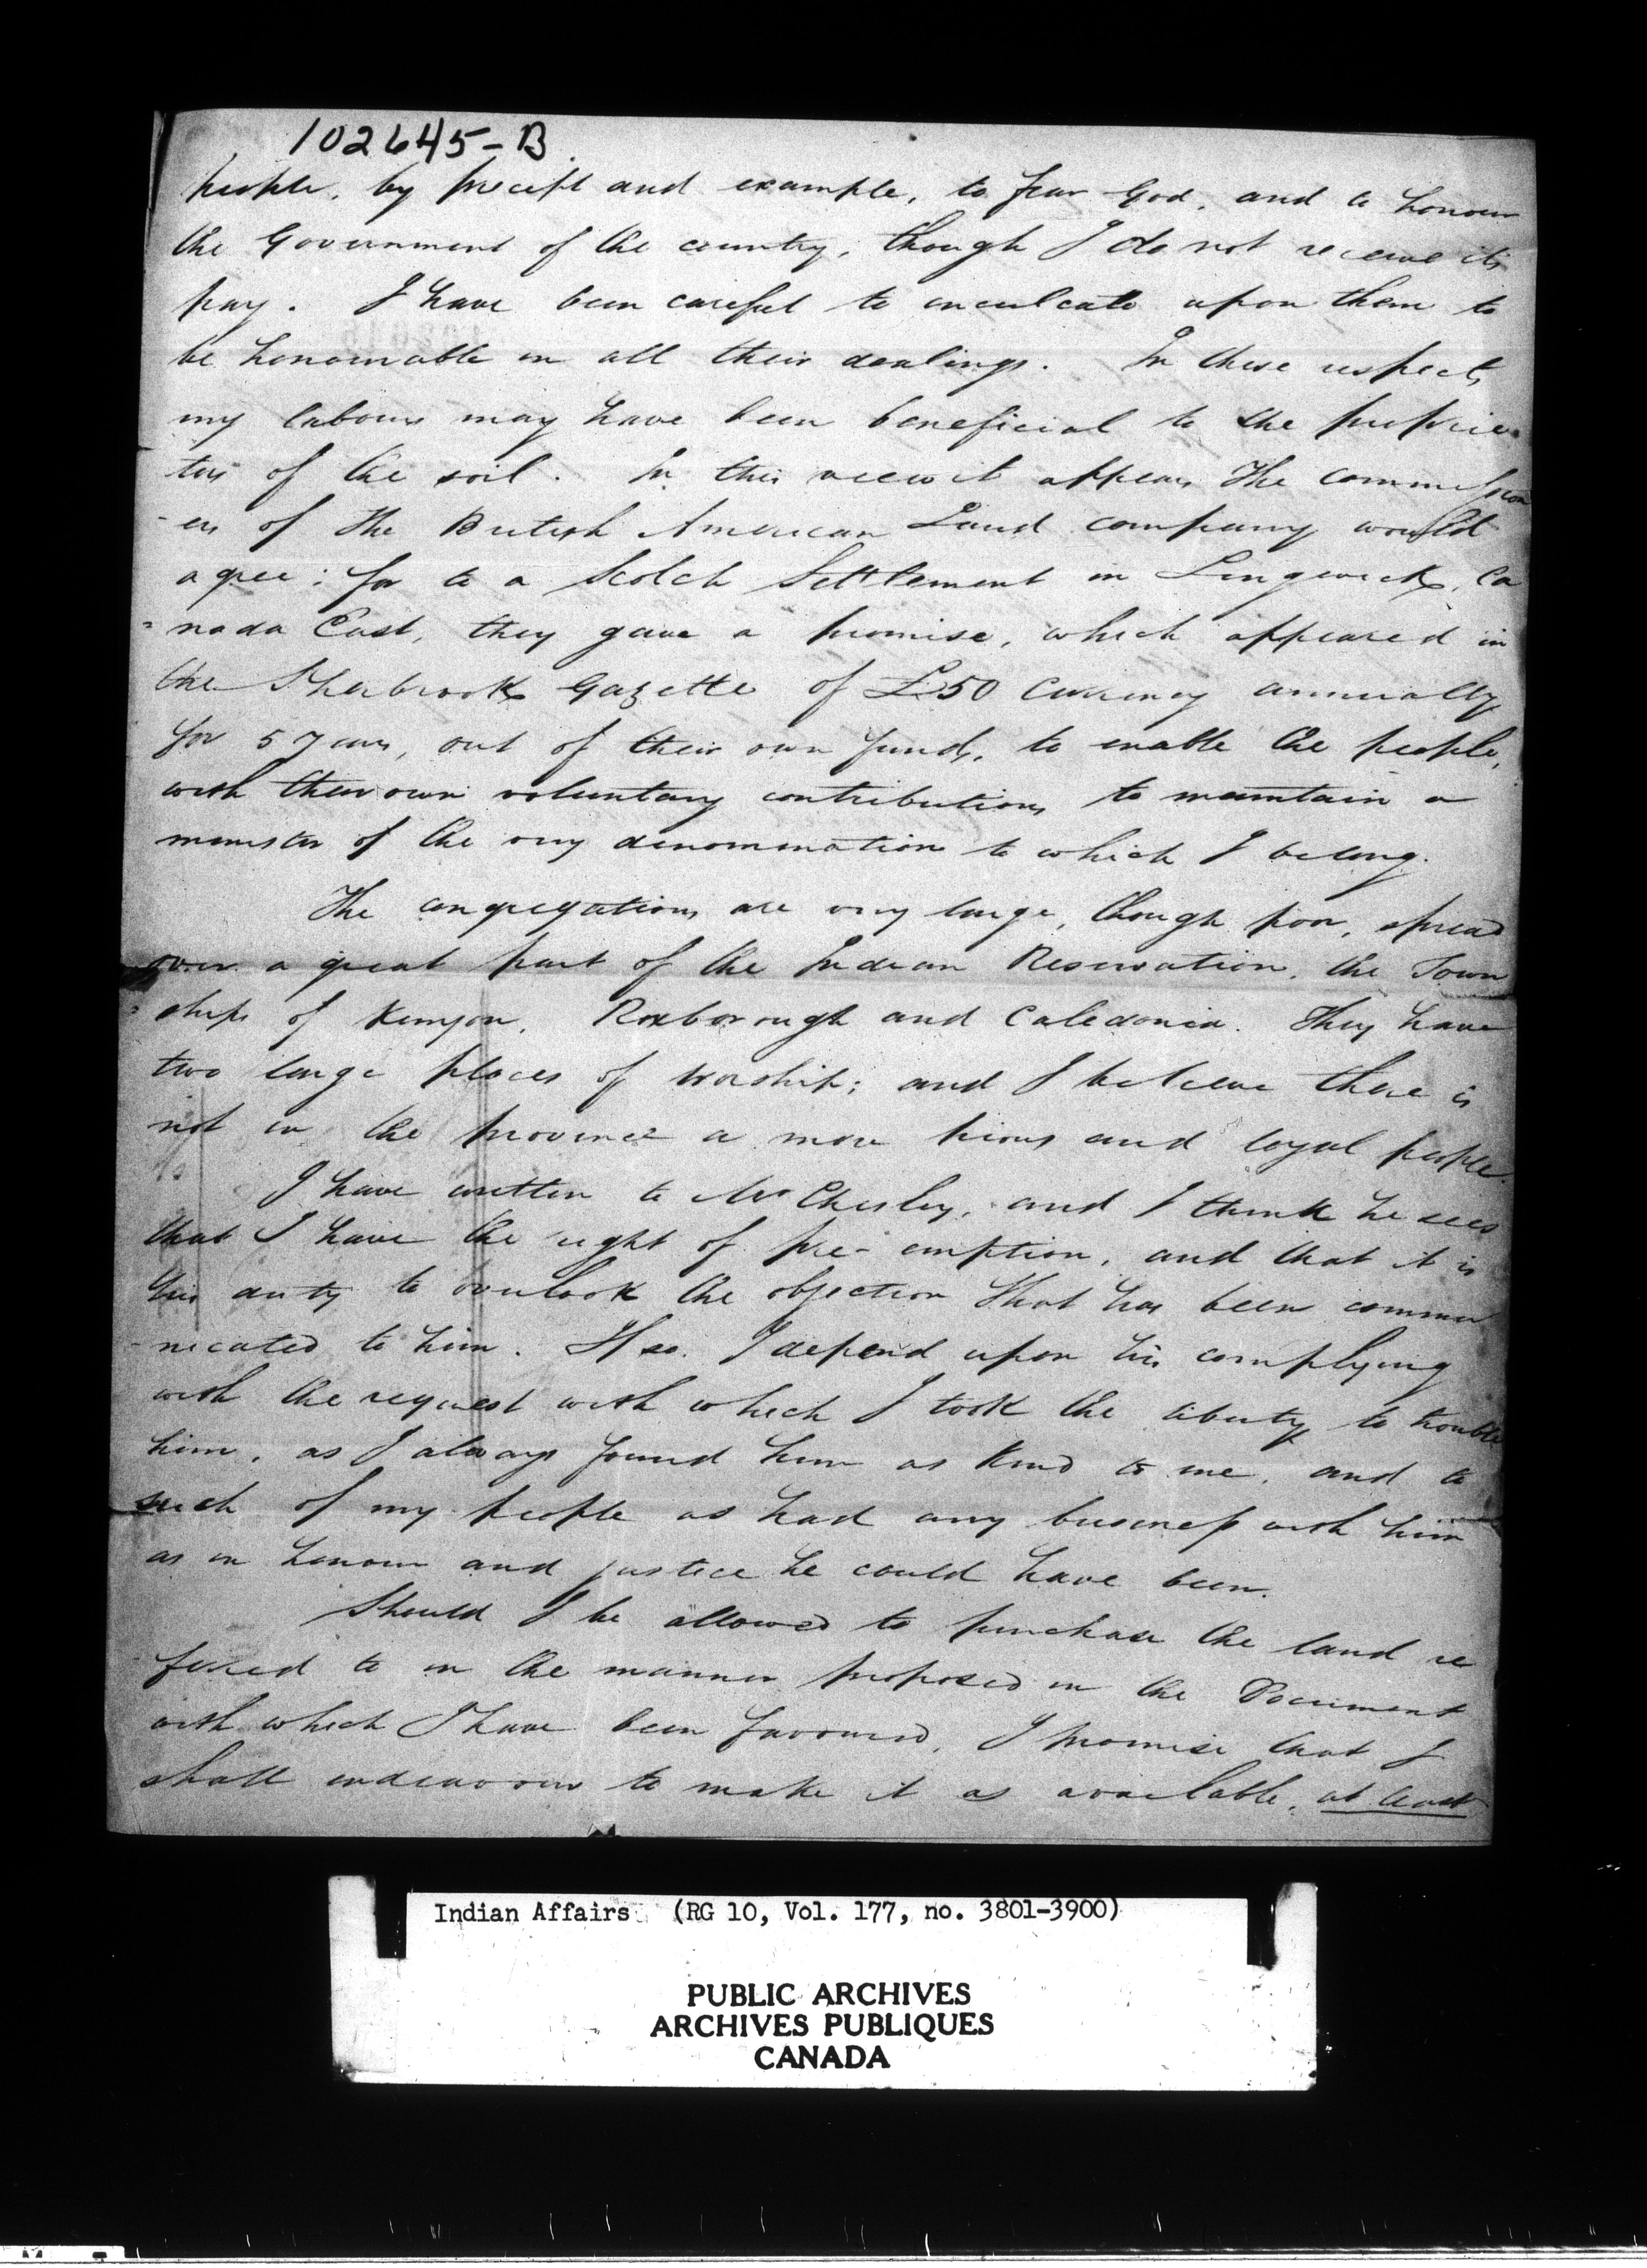 102645-B
people, by precept and example, to fear God, and to honour
the Government of the country, though I do not receive its
pay. I have been careful to inculcate upon them to
be honourable in all their dealings. In these respects
my labours may have been beneficial to the proprie-
tors of the soil. In this view it appears the commission
-ers of the British American Land company would
agree: for to a Scotch Settlement in Lingwick, Ca
=nada East, they gave a promise, which appeared in
the Sherbrook Gazette of £50 Currency annually
for 5 years, out of their own funds, to enable the people,
with their own voluntary contributions to maintain a
minister of the very denomination to which I belong.
The congregations are very large, though poor, spread
over a great part of the Indian Reservation, the Town
=ships of Kenyon, Roxborough and Caledonia. They have
two large places of worship; and I believe there is
not in the province a more pious and loyal people.
I have written to Mr Chesley, and I think he sees
that I have the right of pre-emption, and that it is
his duty to overlook the objection that has been commu
-nicated to him. If so, I depend upon his complying
with the request with which I took the liberty to trouble
him, as I always found him as kind to me, and to
such of my people as had any business with him
as in honour and justice he could have been.
Should I be allowed to purchase the land re
ferred to in the manner proposed in the Document
with which I have been favoured, I promise that I
shall endeavour to make it as available, at least
Indian Affairs (RG 10, Vol. 177, no. 3801-3900)
PUBLIC ARCHIVES
ARCHIVES PUBLIQUES
CANADA